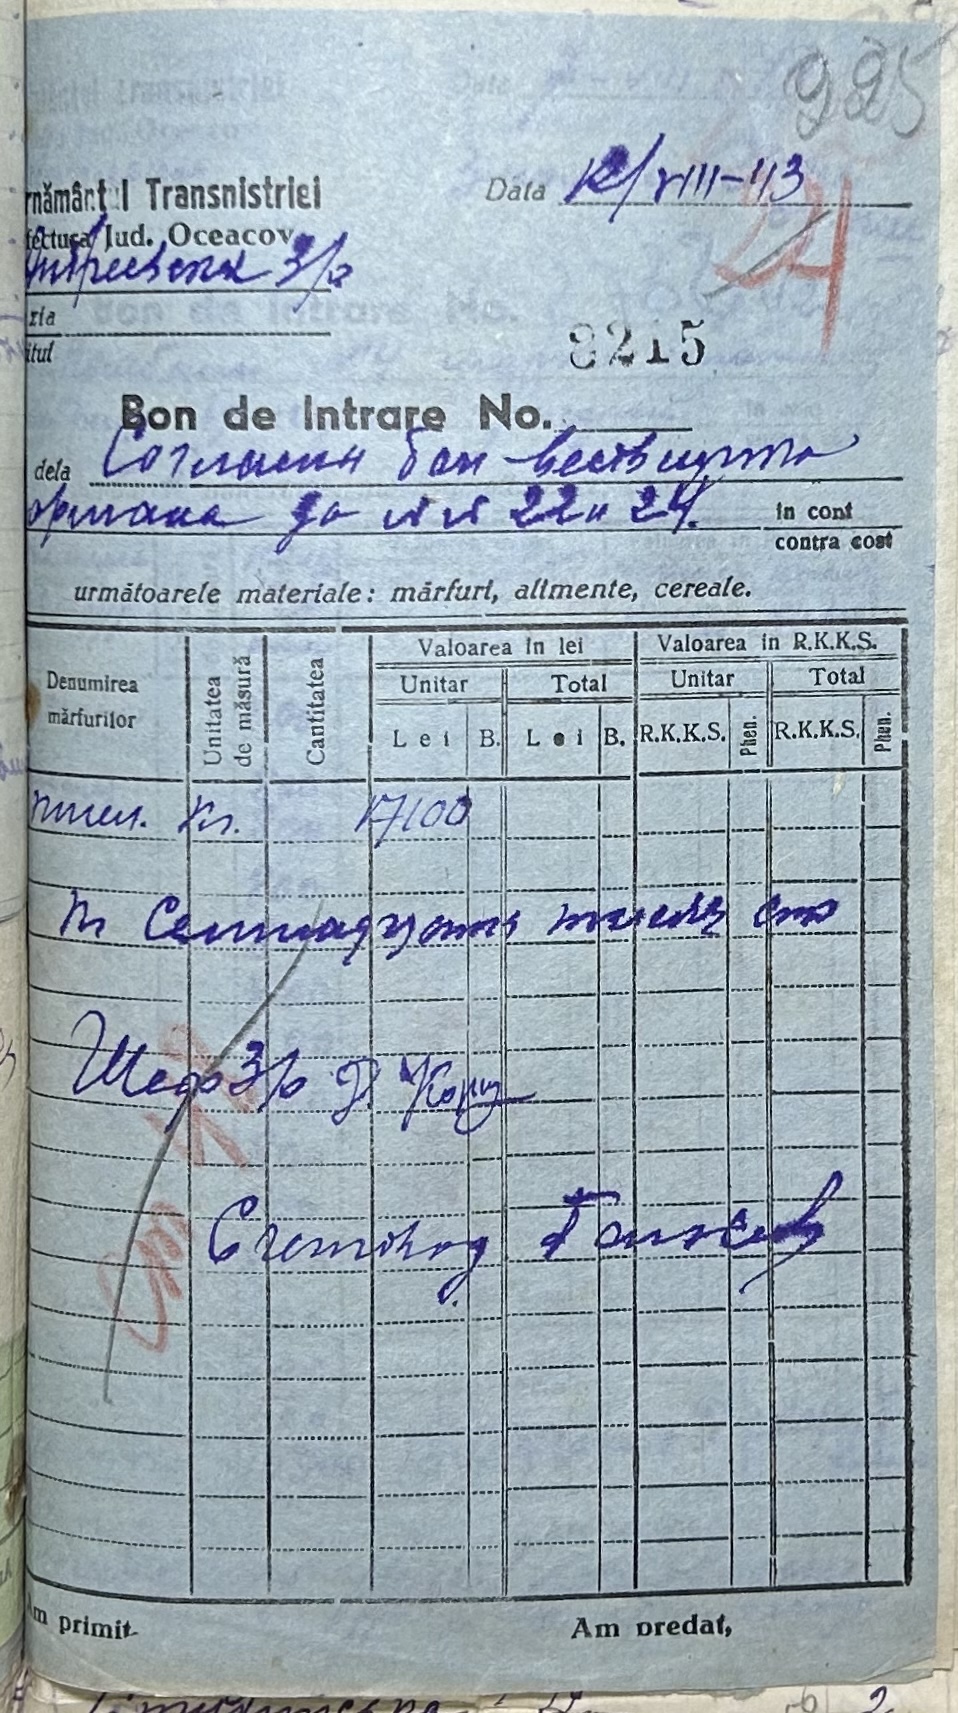 995
rnământul Transnistriei
Data 12/VIII-43
fectura Jud. Oceacov
З/о
24
zia
itul
8215
Bon de Intrare No.
dela Согласни бон
до №№ 22 и 24. in cont
contra cost
următoarele materiale: mărfuri, alimente, cereale.
Denumirea mărfurilor Unitatea de măsură Cantitatea Valoarea in lei Valoarea in R.K.K.S.
Unitar Total Unitar Total
Lei B. Lei B. R.K.K.S. Phen. R.K.K.S. Phen.
пшен. кг. 17100
кг Семнадцать тысяч сто
Шеф З/о
Счетовод
Am primit Am predat,